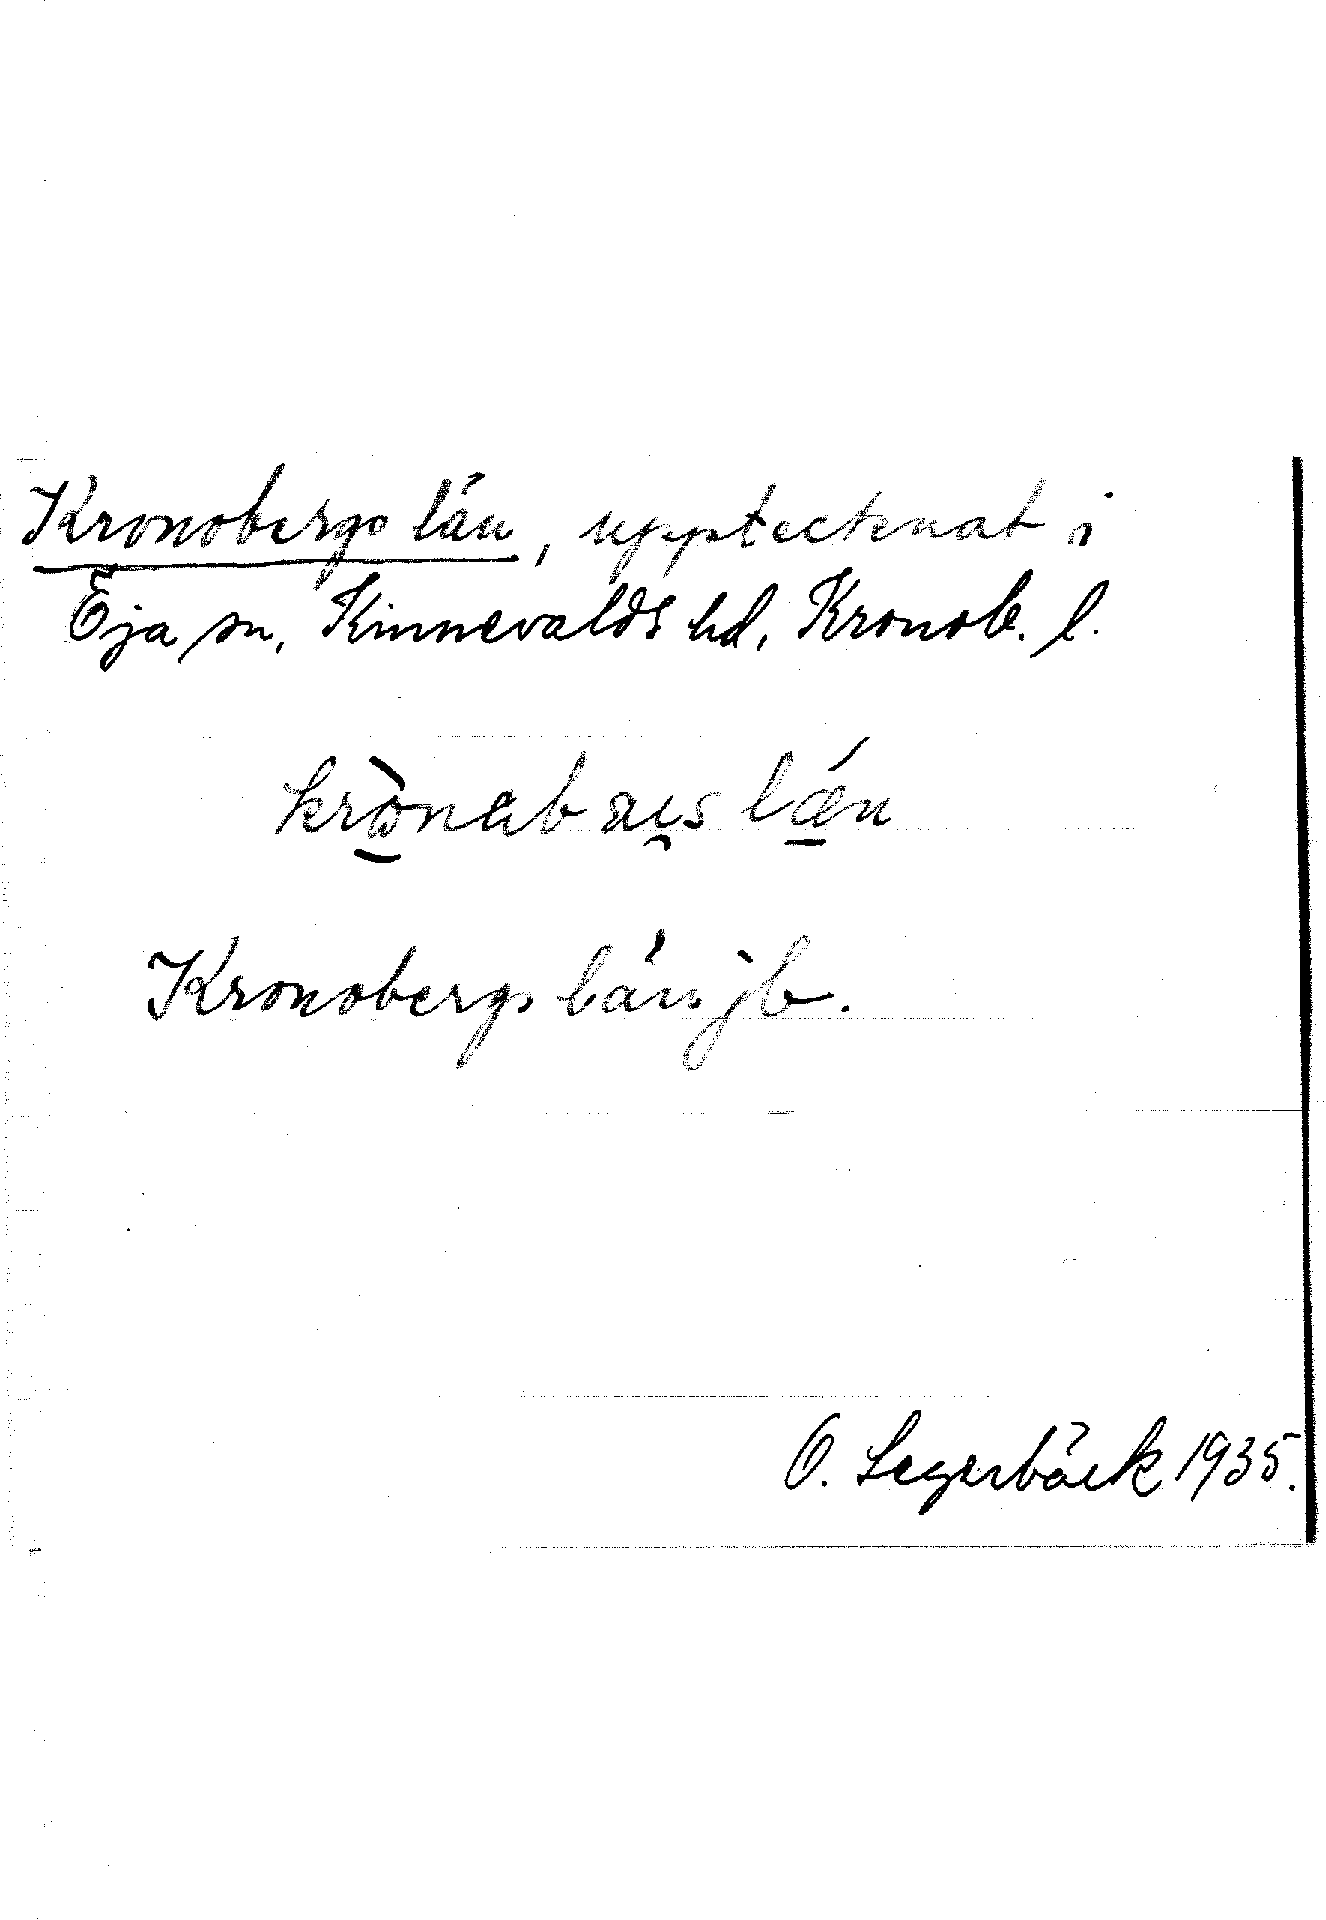 Kronobergs län, upptecknat i
Öja sn, Kinnevalds hd, Kronob. l.
Kronobergs läns jb.
O. Segerbäck 1935.